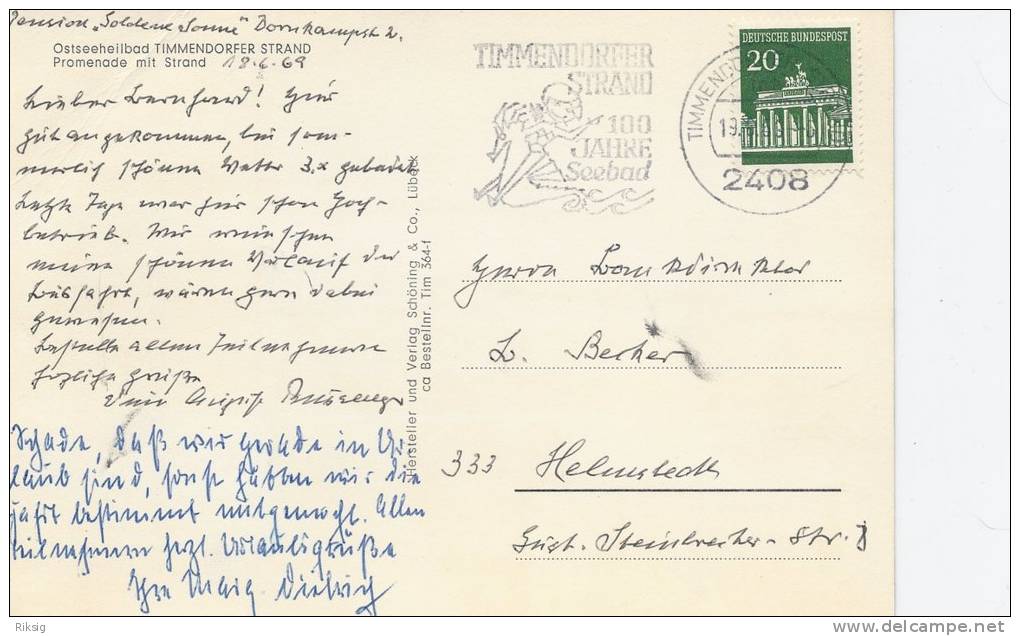 Pension „Goldene Sonne" Dornkampstr. 2.
Ostseeheilbad TIMMENDORFER STRAND
Promenade mit Strand 18.6.69
Lieber Bernhard! Hier
gut angekommen, bei som-
merlich schönem Wetter 3x gebadet
Letzte Tage war hier schon Hoch-
betrieb. Wir wünschen
einen schönen Verlauf der
Busfahrt, wären gern dabei
gewesen.
Bestelle allen Teilnehmern
herzliche Grüße
Dein
Schade, daß wir gerade in Ur-
laub sind, sonst hätten wir die
Fahrt bestimmt mitgemacht. Allen
Teilnehmern herzl. Urlaubsgrüße
Ihre
Hersteller und Verlag Schöning & Co., Lübeck
ca Bestellnr. Tim 364-f
TIMMENDORFER
STRAND
100
JAHRE
Seebad
TIMMENDO
19.
2408
DEUTSCHE BUNDESPOST
20
Herrn Bankdirektor
B. Becker
333 Helmstedt
Gust. Steinbrecher-Str.
Riksig
http://www.delcampe.net